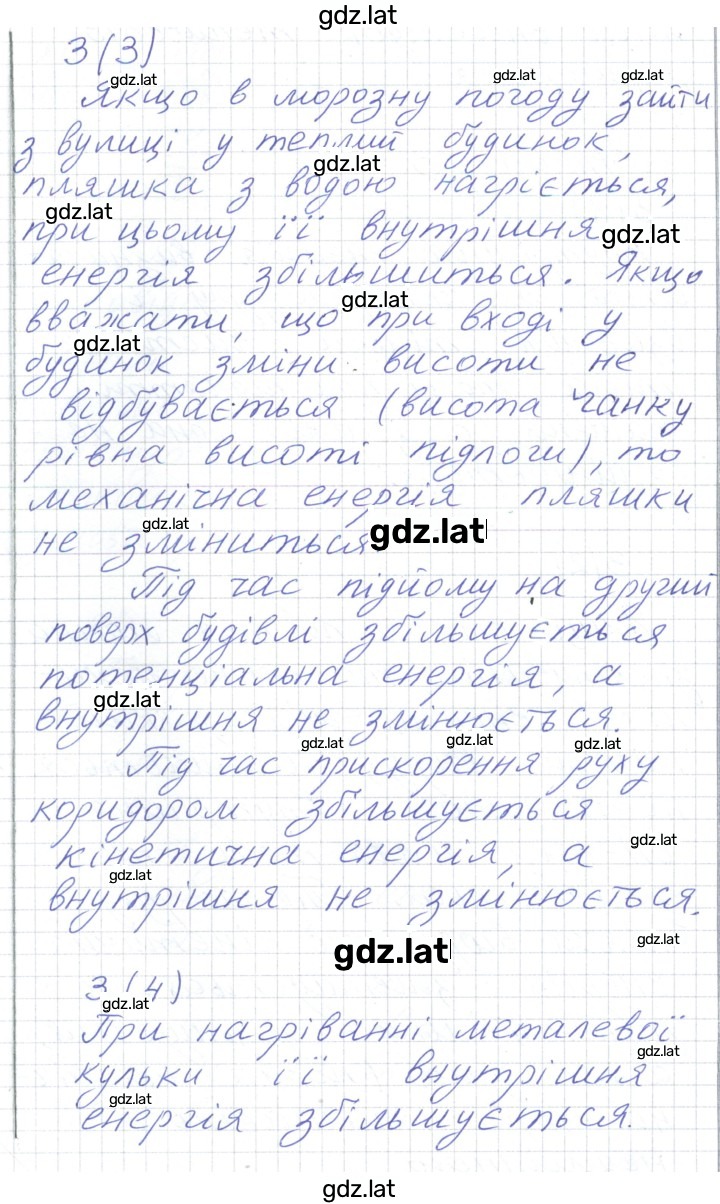 gdz.lat
3(3)
gdz.lat gdz.lat gdz.lat
Якщо в морозну погоду зайти
з вулиці у теплий будинок,
gdz.lat
пляшка з водою нагріється,
gdz.lat
при цьому її внутрішня
gdz.lat
енергія збільшиться. Якщо
gdz.lat
вважати, що при вході у
gdz.lat
будинок зміни висоти не
відбувається (висота ганку
рівна висоті підлоги), то
механічна енергія пляшки
gdz.lat gdz.lat
не зміниться.
Під час підйому на другий
поверх будівлі збільшується
потенціальна енергія, а
gdz.lat
внутрішня не змінюється.
gdz.lat gdz.lat gdz.lat
Під час прискорення руху
коридором збільшується
gdz.lat
кінетична енергія, а
gdz.lat
внутрішня не змінюється.
gdz.lat gdz.lat
3(4)
gdz.lat
При нагріванні металевої
gdz.lat
кульки її внутрішня
gdz.lat
енергія збільшується.
gdz.lat